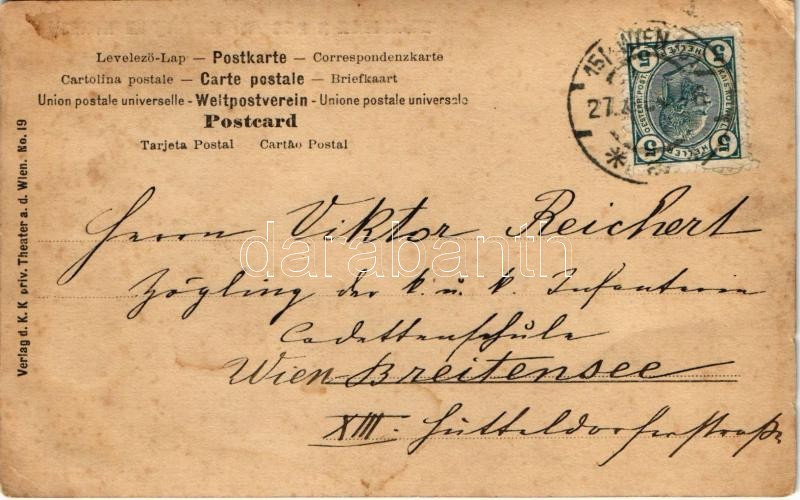 Levelezö-Lap — Postkarte — Correspondenzkarte
Cartolina postale — Carte postale — Briefkaart
Union postale universelle - Weltpostverein - Unione postale universale
Postcard
Tarjeta Postal Cartão Postal
WIEN
27.
5 5
5 HELLER 5
Herrn Viktor Reichert
Zögling der k. u. k. Infanterie
Cadettenschule
Wien Breitensee
XIII. Hütteldorferstraße
Verlag d. K. K priv. Theater a. d. Wien. No. 19
darabanth